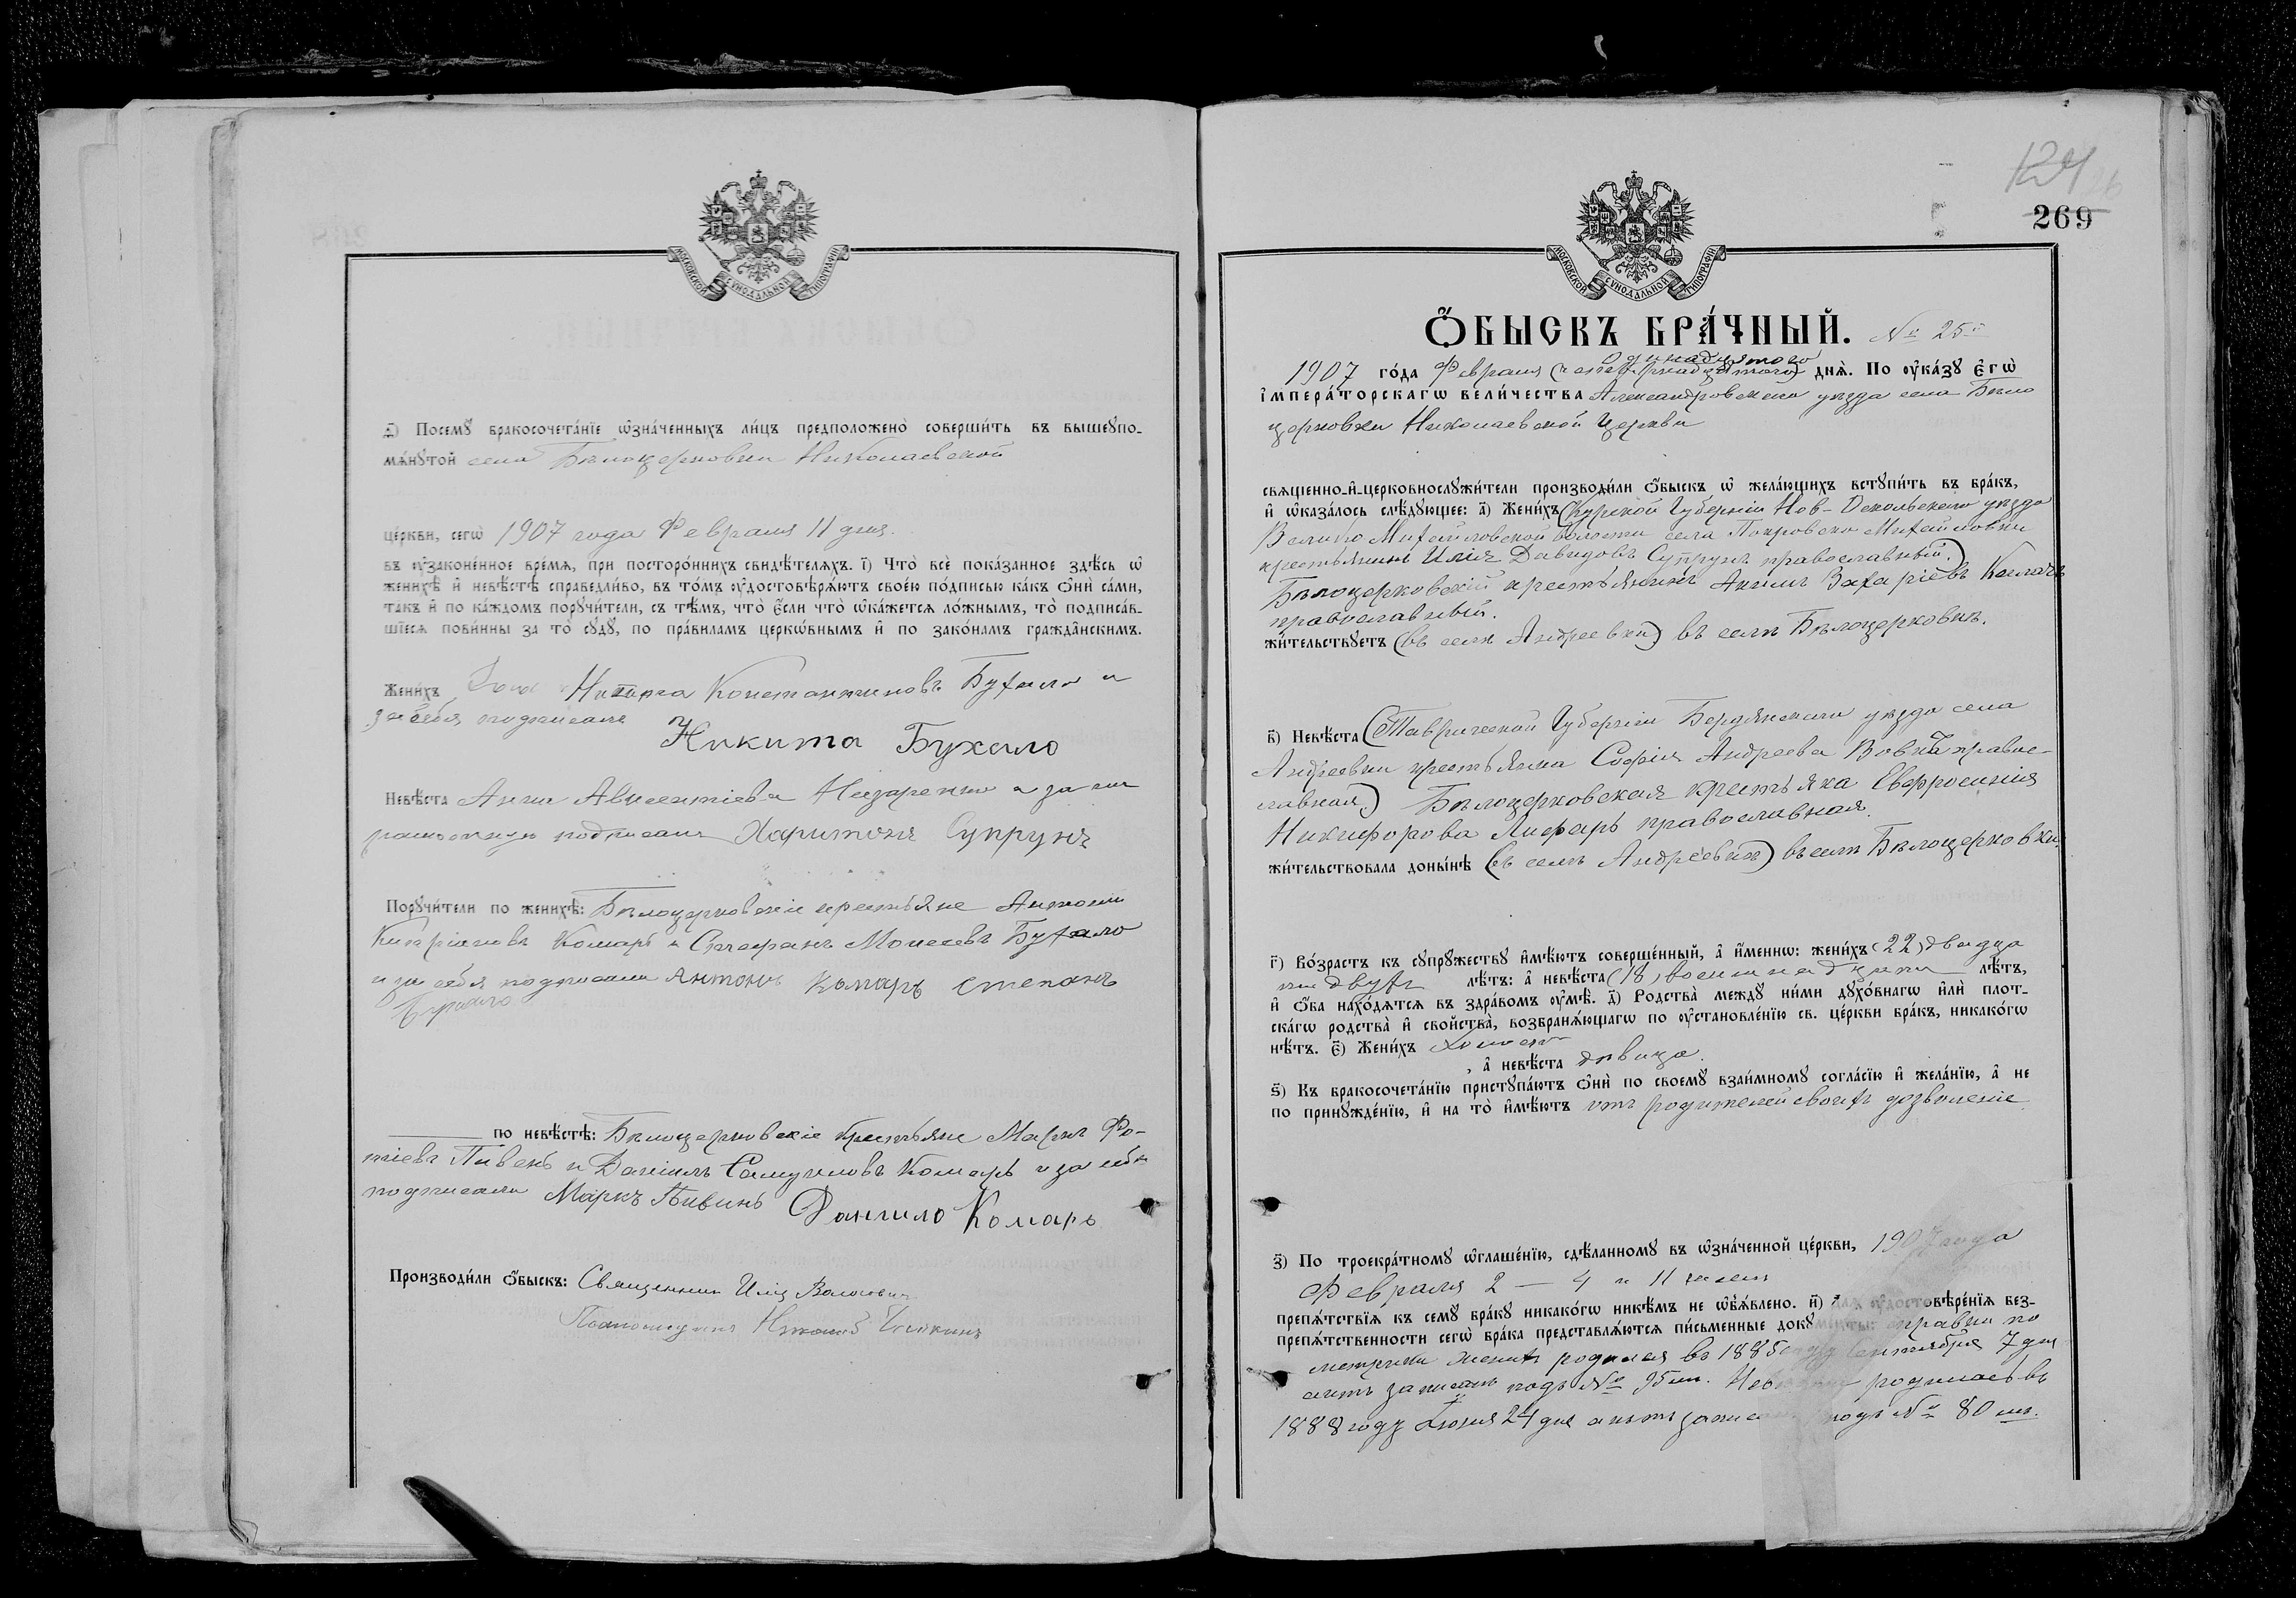 МОСКОВСКОЙ СѴНОДАЛЬНОЙ ТИПОГРАФІИ
ѳ҃) Посемꙋ̀ бракосочета́нїе ѡ҆зна́ченныхъ ли́цъ предположено̀ соверши́ть въ вышеꙋпо-
мѧ́нꙋтой села Бѣлоцерковки Николаевской
це́ркви, сегѡ̀ 1907 года Февраля 11 дня.
въ ᲂу҆зако́ненное вре́мѧ, при посторо́ннихъ свидѣ́телѧхъ. і҃) Что̀ всѐ пока́занное здѣ́сь ѡ҆
женихѣ̀ и҆ невѣ́стѣ справедли́во, въ то́мъ ᲂу҆достовѣрѧ́ютъ свое́ю по́дписью ка́къ ѻ҆нѝ са́ми,
та́къ и҆ по ка́ждомъ порꙋчи́тели, съ тѣ́мъ, что̀ є҆́сли что̀ ѡ҆ка́жетсѧ ло́жнымъ, то̀ подписа́в-
шїесѧ пови́нны за то̀ сꙋдꙋ̀, по пра́виламъ церкѡ́внымъ и҆ по зако́намъ гражда̂нскимъ.
Жени́хъ Никита Константиновъ Бухало и
за себя подписался
Никита Бухало
Невѣ́ста Анна Авксентіева Назаренко и за нея
расписался Харитонъ Супрунъ
Порꙋчи́тели по женихѣ̀: Бѣлоцерковскіе крестьяне Антоній
Кипріановъ Комаръ и Стефанъ Моисеевъ Бухало
и за себя подписали Антонъ Комаръ Степанъ
Бухало
по невѣ́стѣ: Бѣлоцерковскіе крестьяне Маркъ Фо-
тіевъ Пивень и Даніилъ Самуиловъ Комаръ и за себя
подписали Маркъ Пивинь Данило Комарь
Производи́ли ѻ҆́быскъ: Священникъ Илія
Псаломщикъ Николай
124
269
МОСКОВСКОЙ СѴНОДАЛЬНОЙ ТИПОГРАФІИ
Ѻ҆́БЫСКЪ БРА́ЧНЫЙ. № 25й
одинадцятого
1907 го́да Февраля (четырнадцятого) днѧ̀. По ᲂу҆ка́зꙋ Є҆гѡ̀
і҆мпера́торскагѡ вели́чества Александровскаго уѣзда села Бѣло
церковки Николаевской Церкви
свѧще́нно-и҆-церковнослꙋжи́тели производи́ли ѻ҆́быскъ ѡ҆ жела́ющихъ встꙋпи́ть въ бра́къ,
и҆ ѡ҆каза́лось слѣ́дꙋющее: а҃) Жени́хъ (Курской Губерніи Нов-Оскольскаго уѣзда
Велико Михайловской волости села Покровско Михайловки
крестьянинъ Илія Давидовъ Супрунъ православный.)
Бѣлоцерковскій крестьянинъ Акимъ Захаріевъ
православный.
жи́тельствꙋетъ (въ селѣ Андреевки) въ селѣ Бѣлоцерковкѣ.
в҃) Невѣ́ста (Таврической Губерніи Бердянскаго уѣзда села
Андреевки крестьянка Софія Андреева Вовна правос-
лавная.) Бѣлоцерковская крестьянка Евфросинія
Никифорова Лифарь православная.
жи́тельствовала доны́нѣ (въ селѣ Андреевки) въ селѣ Бѣлоцерковки.
г҃) Во́зрастъ къ сꙋпрꙋ́жествꙋ и҆мѣ́ютъ соверше́нный, а҆ и҆́меннѡ: жени́хъ (22) двадца
ти двухъ лѣ́тъ: а҆ невѣ́ста (18) восемнадцяти лѣ́тъ,
и҆ ѻ҆́ба нахо́дѧтсѧ въ здра́вомъ ᲂу҆мѣ̀. д҃) Родства̀ междꙋ̀ ни́ми дꙋхо́внагѡ и҆лѝ плот-
ска́гѡ родства̀ и҆ сво́йства̀, возбранѧ́ющагѡ по ᲂу҆становле́нїю св. це́ркви бра́къ, никако́гѡ
нѣ́тъ. є҃) Жени́хъ холостъ
, а҆ невѣ́ста дѣвица.
ѕ҃) Къ бракосочета́нїю пристꙋпа́ютъ ѻ҆нѝ по своемꙋ̀ взаи́мномꙋ согла́сїю и҆ жела́нїю, а҆ не
по принꙋжде́нїю, и҆ на то̀ и҆мѣ́ютъ отъ родителей своихъ дозволеніе
з҃) По троекра́тномꙋ ѡ҆глаше́нїю, сдѣ́ланномꙋ въ ѡ҆зна́ченной це́ркви, 1907 года
Февраля 2 — 4 и 11 чисел
препѧ́тствїѧ къ семꙋ̀ бра́кꙋ никако́гѡ никѣ́мъ не ѡ҆б̾ѧ́влено. и҃) Для ᲂу҆достовѣре́нїѧ без-
препѧ́тственности сегѡ̀ бра́ка представлѧ́ютсѧ пи́сьменные докꙋме́нты: справки по
метрики женихъ родился въ 1885 году Сентября 7 дня
актъ записанъ подъ № 95м. Невѣста родилась въ
1888 году Іюня 24 дня актъ записанъ подъ № 80 м.